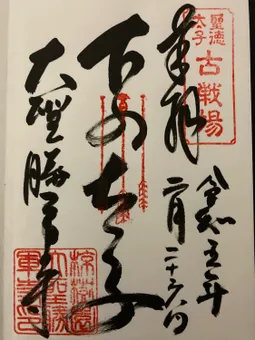 聖徳
太子
古戦場
奉拝
令和五年
二月二十六日
下の太子
大聖勝軍寺